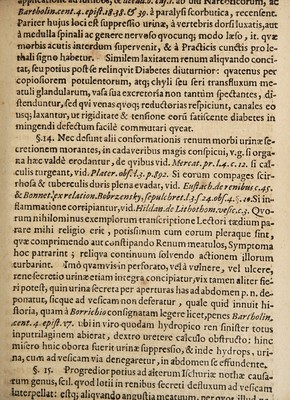 applicatione ad
Bartholin. cent. epist. 18. 38. & 39. à paralysi scorbutica, recensent.
Pariter hujus loci est suppressio urinæ, à vertebris dorsi luxatis, aut
à medulla spinali ac genere nervoso quocunq; modo læso, it. quæ
morbis acutis interdum supervenit, & à Practicis cunctis pro le-
thali signo habetur. Similem laxitatem renum aliquando concin-
tat, seu potius post se relinquit Diabetes diuturnior: quatenus per
copiosiorem potulentorum, atq; chyli seu seri transfluxum me-
atuli glandularum, vasa sua excretoria non tantum spectantes, di-
stenduntur, sed qvi venas qvoq; reductorias respiciunt, canales eo
usq; laxantur, ut rigiditate & tensione eorū fatiscente diabetes in
mingendi defectum facilè commutari qveat.
§. 14. Nec desunt alii conformationis renum morbi urinæ se-
cretionem morantes, in cadaveribus magis conspicui, v. g. si orga-
na hæc valdè erodantur, de qvibus vid. Mercat. pr. l. 4. c. 22. si calc-
culis turgeant, vid. Plater. obs. l. 3. p. 892. Si eorum compages scir-
rhosa & tuberculis duris plena evadat, vid. Eustach. de renibus c. 45.
& Bonnet. ex relatione Bobrzensky, sepulchret. l. 3. s. 24. obs. 4. §. 10 Si in-
flammatione corripiantur, vid. Hildan. de Lithothom. vesic. c. 3. Qvo-
rum nihilominus exemplorum transcriptione Lectori tædium pa-
rare mihi religio erit, potissimum cum eorum pleraque sint,
quæ comprimendo aut constipando Renum meatulos, Symptoma
hoc patrarint; reliqva continuum solvendo actionem illorum
turbarint. Imò qvamvis in perforato, vel à vulnere, vel ulcere,
rene secretio urinæ etiam integra concipiatur, vix tamen aliter fie-
ri potest, quin urina secreta per aperturas has ad abdomen p. n. de-
ponatur, sicque ad vesicam non deferatur, quale quid innuit hi-
storia, quam à Borrichio consignatam legere licet, penes Bartholin.
cent. 4. epist. 17. ubi in viro quodam hydropico ren sinister totus
inputrilaginem abierat, dextro uretere calculo obstructo: hinc
misero huic oborta fuerit urinæ suppressio, & inde hydrops, uri-
na, cum ad vesicam via denegaretur, in abdomen se effundente.
§. 15. Progredior potius ad alterum Ischuriæ nothæ causa-
rum genus, scil. qvod lotii in renibus secreti defluxum ad vesicam
interpellat: estq; aliquando angustia meatuum, per